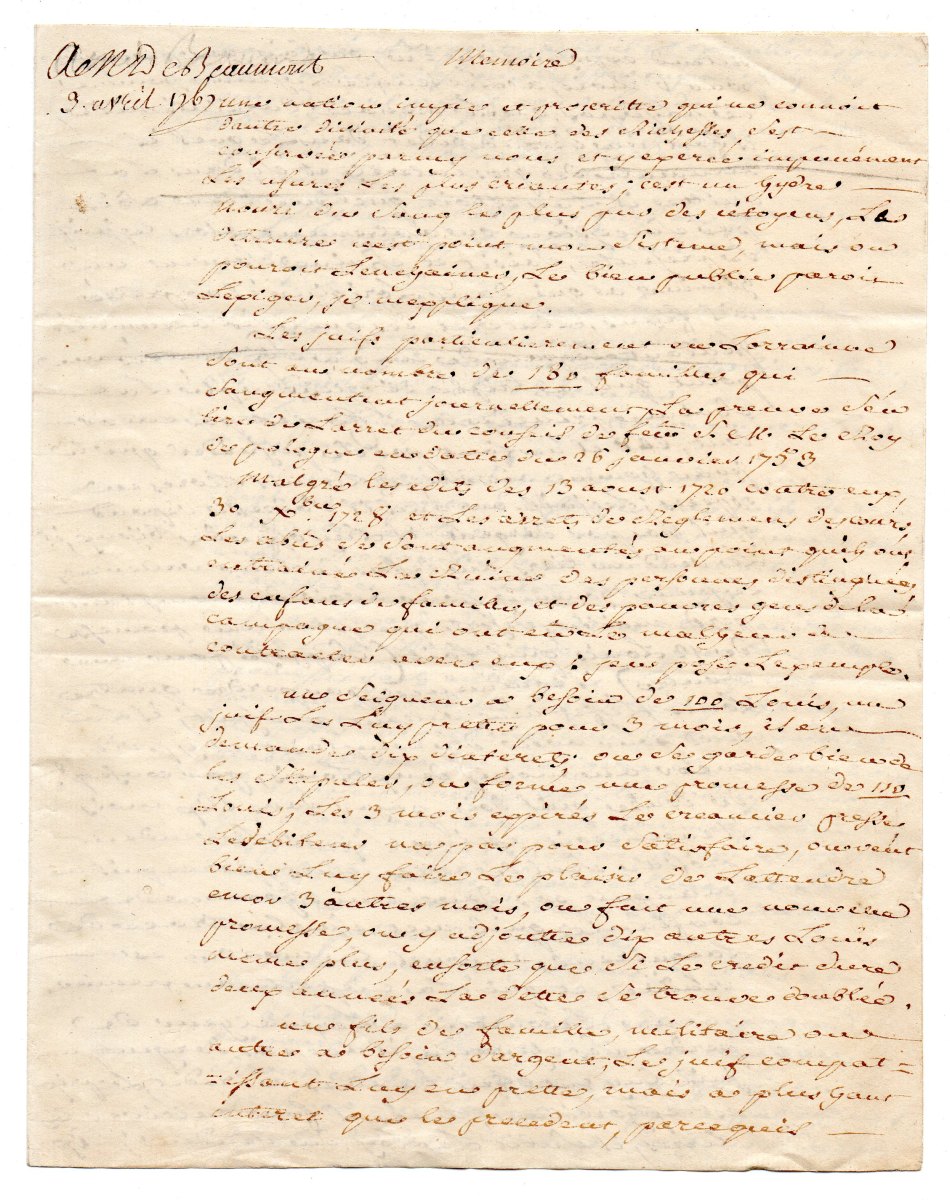 A Mr De Beaumont
Memoire
3. avril 176
une nation impie et proscritte qui ne connoit
dautre divinité que celle des Richesses Sest
conservée parmy nous et y exerce impunément
Les usures Les plus criantes; cest un hydre
Nouri du Sang le plus pur des citoyens, La
detruire nest point mon Sisteme, mais on
pouroit Lenchainer, Le bien public paroit
Lexiger, je mexplique.
Les juifs particulierement en Lorrainne
Sont au nombre de 180 familles qui
Saugmentent journellement La preuve Sen
tire de Larret du conseil de feüe S. M. Le Roy
de pologne en datte du 26 janvier 1753
Malgré les edits des 13 aoust 1720 contre eux,
30 Xbre 1728 et Les arrets de Reglemens des cours,
Les abus Se Sont augmentés au point quils ont
entrainé La Ruine des personnes distinguées,
des enfans de famille, et des pauvres gens de la
campagne qui ont eü Le malheur de
contracter avec eux; jen pose Lexemple.
un Seigneur a besoin de 100 Louis, un
juif Les Luy prette pour 3 mois, il en
demande dix dinterets on Se garde bien de
les Stipuler, on forme une promesse de 110
Louis, Les 3 mois expirés Le creancier presse
Le debiteur na pas pour Satisfaire, on veut
bien Luy faire Le plaisir de Lattendre
encor 3 autres mois, on fait une nouvelle
promesse, on y adjoutte dix autres Loüis
même plus, ensorte que Si Le credit dure
deux années La dette Se trouve doublée.
un fils de famille, militaire ou
autre a besoin dargent, Le juif compat=
=issant Luy en prette, mais a plus haut
interet que le precedent, parcequil